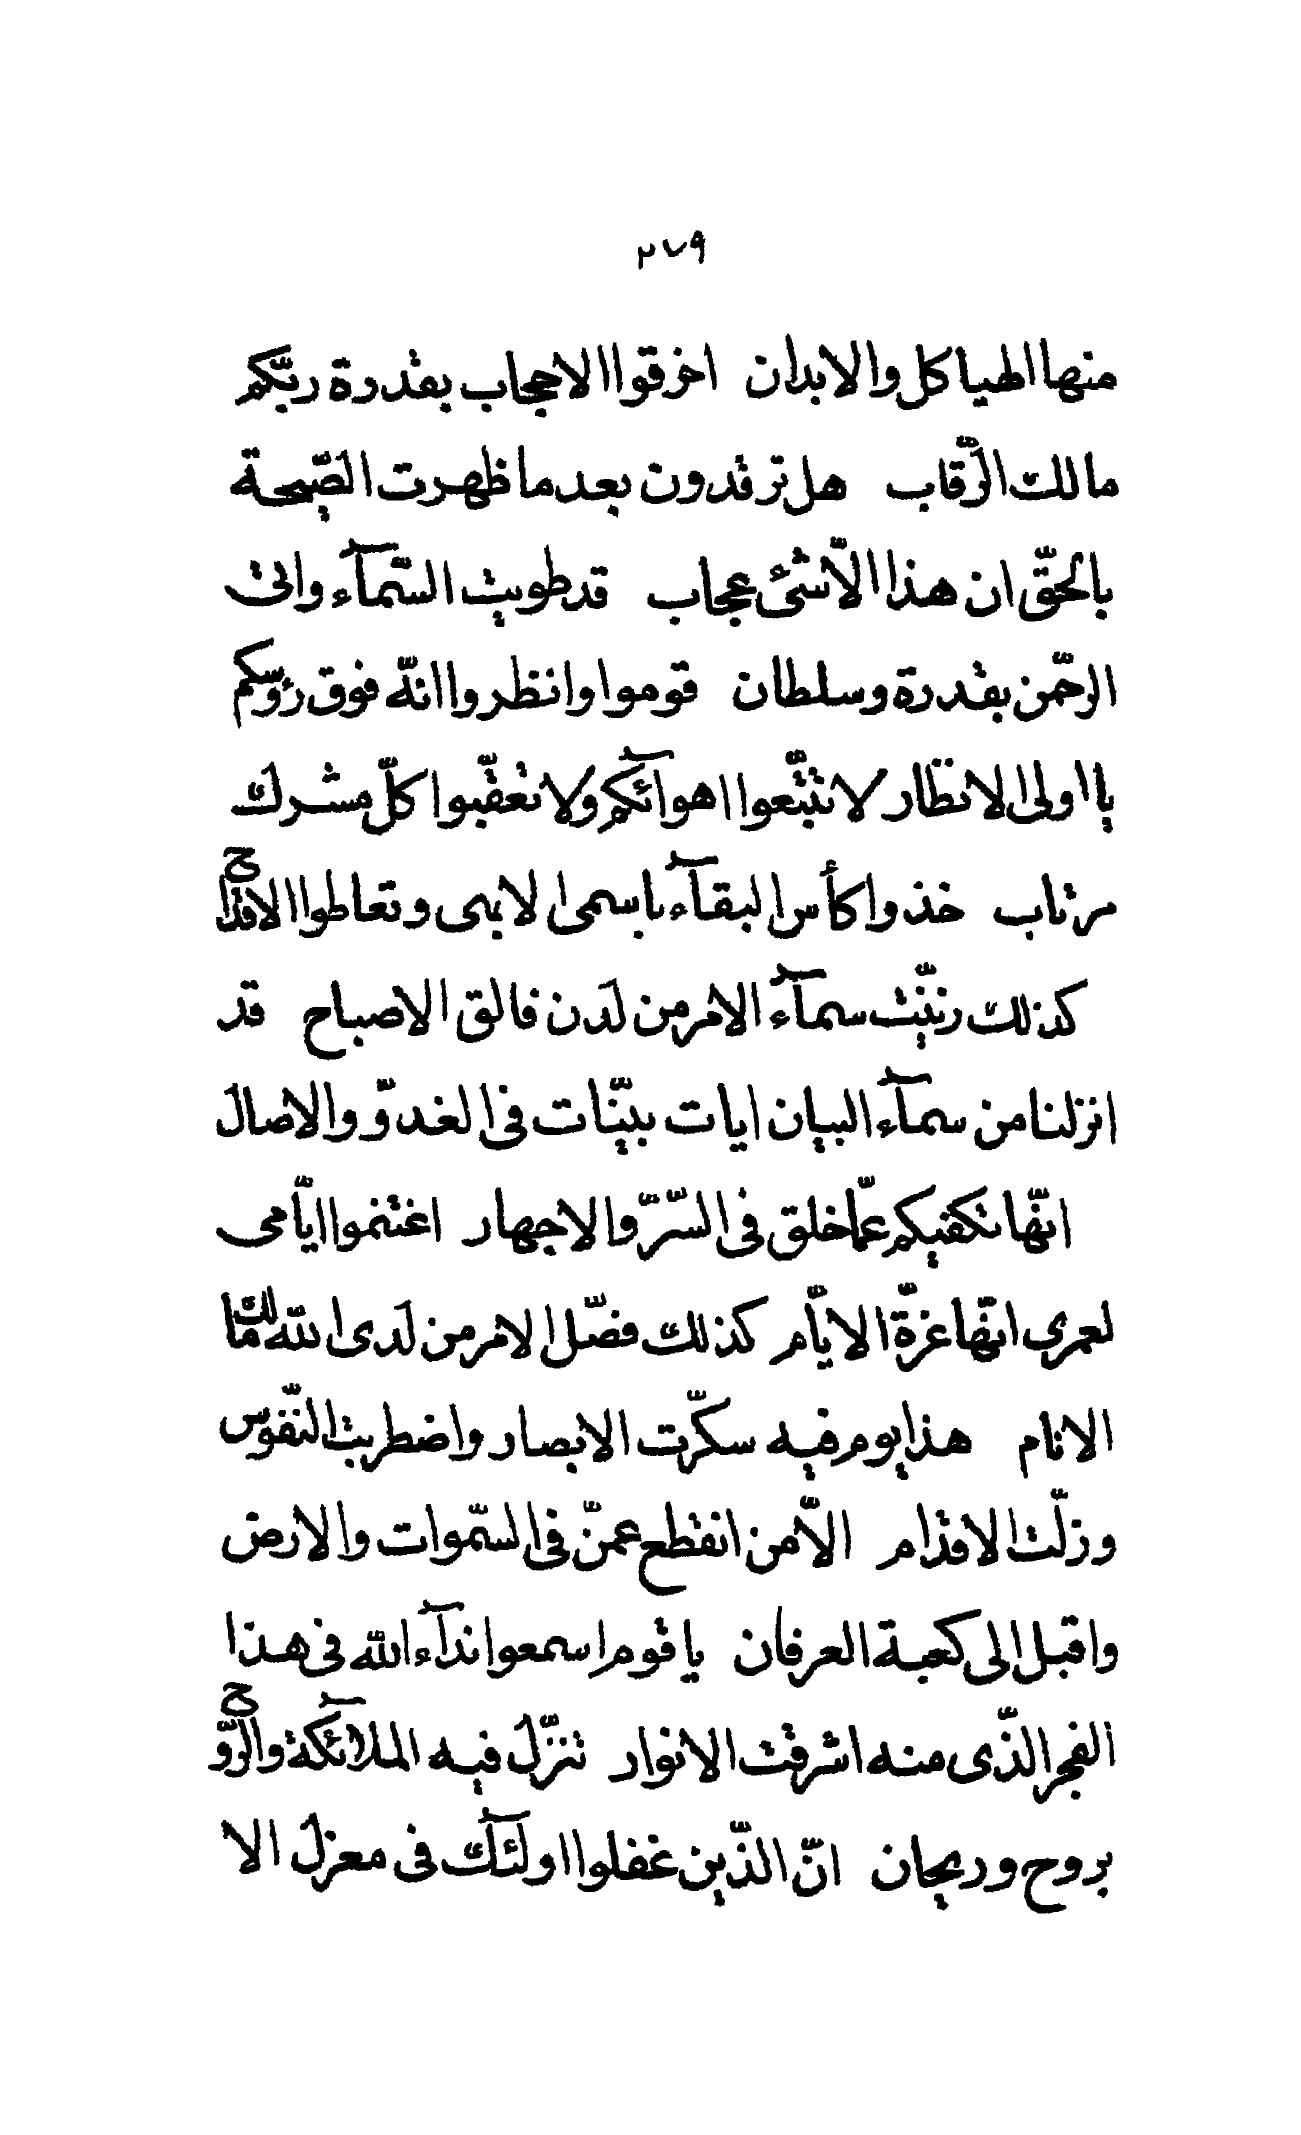 ٢٧٩
منها الهیاکل والابدان اخرقوا الاحجاب بقدرة ربّکم
مالك الرّقاب هل ترقدون بعد ما ظهرت الصّیحة
بالحقّ ان هذا الّا شئ عجاب قد طویت السّمآء واتی
الرحّمن بقدرة وسلطان قوموا وانظروا انّه فوق رؤسّکم
یا اولی الانظّار لا تتّبعوا اهوآئکم ولا تعقّبوا کلّ مشرك
مرتاب خذوا کأس البقآء باسمی الابهی وتعاطوا الاقداح
کذلك زینّت سمآء الامر من لدن فالق الاصباح قد
انزلنا من سمآء البیان ایات بینّات فی الغدوّ والاصال
انهّا تکفیکم عمّا خلق فی السّرّ والاجهار اغتنموا ایّامی
لعمری انهّا غرّة الایّام کذلك فصّل الامر من لدی الله مالك
الانام هذا یوم فیه سکرّت الابصار واضطربت النّفوس
وزلّت الاقدام الّا من انقطع عمنّ فی السّموات والارض
واقبل الی کعبة العرفان یا قوم اسمعوا ندآء الله فی هذا
الفجر الذّی منه اشرقت الانوار تنزّل فیه الملآئکة والرّوح
بروح وریحان انّ الذّین غفلوا اولئك فی معزل الا